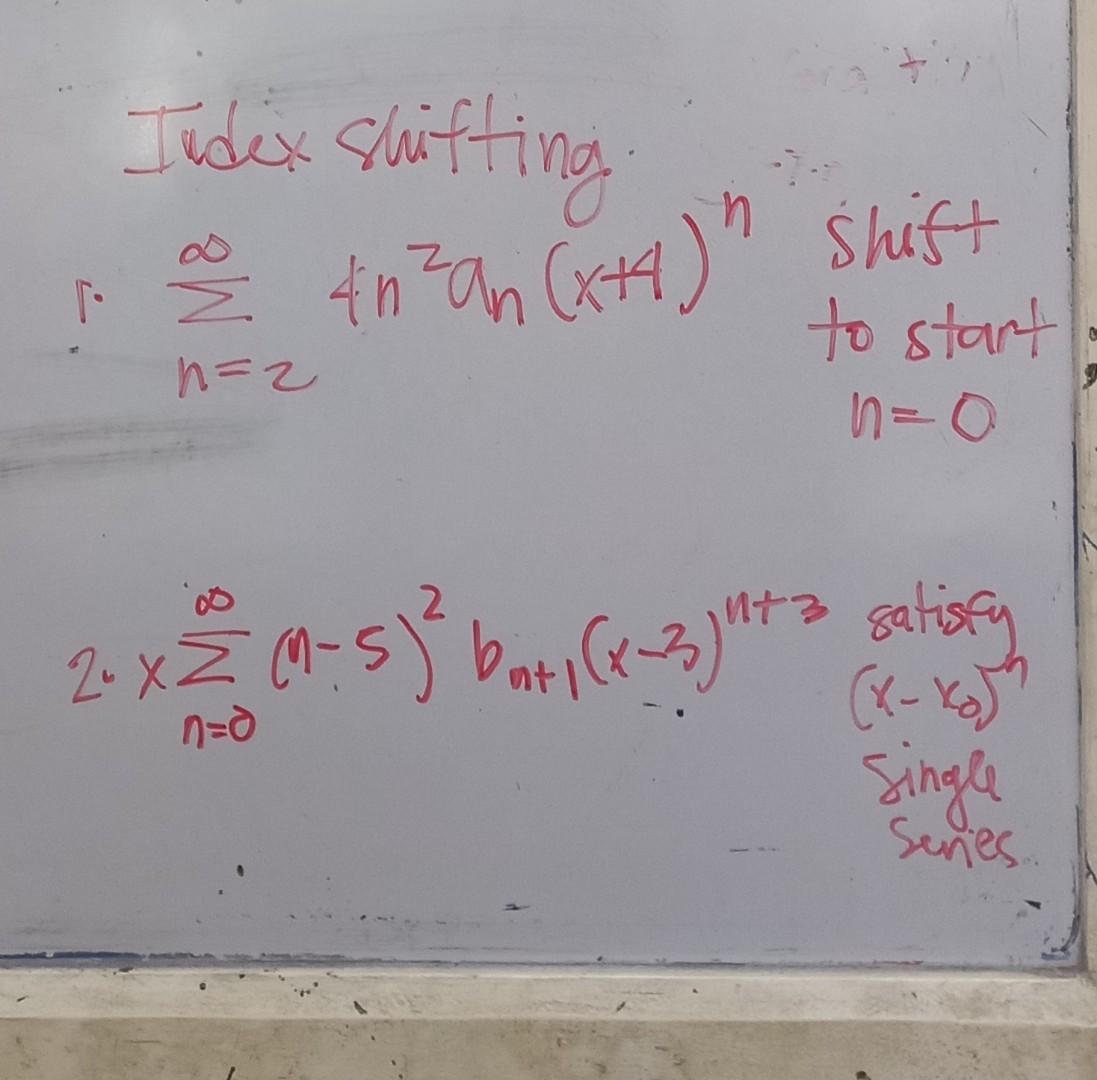 Index shifting.
1. ∞∑n=2 4n²aₙ(x+4)ⁿ shift
to start
n=0
2. x ∞∑n=0 (n-5)² bₙ₊₁(x-3)ⁿ⁺³ satisfy
(x-x₀)ⁿ
single
series